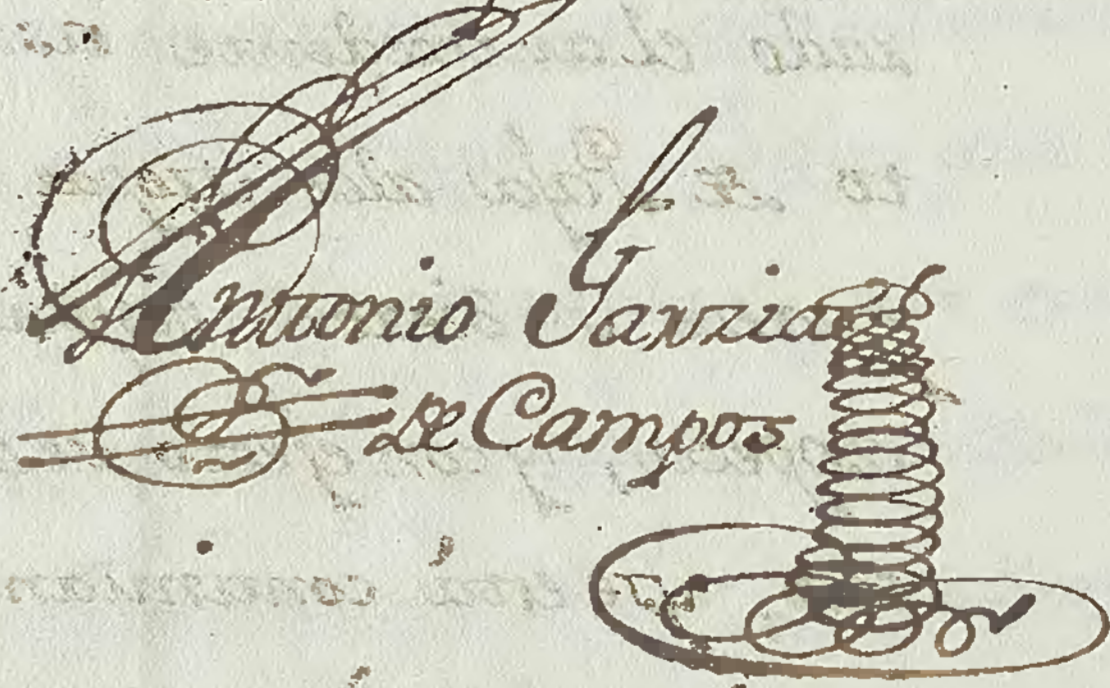 Antonio Garzia
De Campos